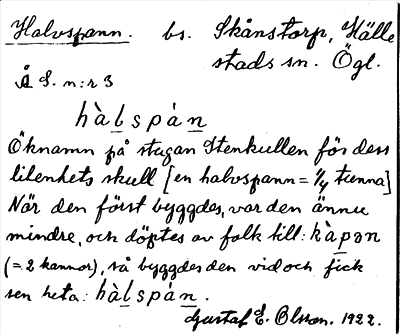 Halvspann. bs. Skånstorp, Hälle
stads sn. Ögl.
Å S. n:r 3
hàlspàn
Öknamn på stugan Stenkullen för dess
lilenhets skull [en halvspann = 1/4 tunna]
När den först byggdes, var den ännu
mindre, och döptes av folk till: kàpən
(= 2 kannor), så byggdes den vid och fick
sen heta: hàlspàn.
Gustaf E. Olsson. 1922.